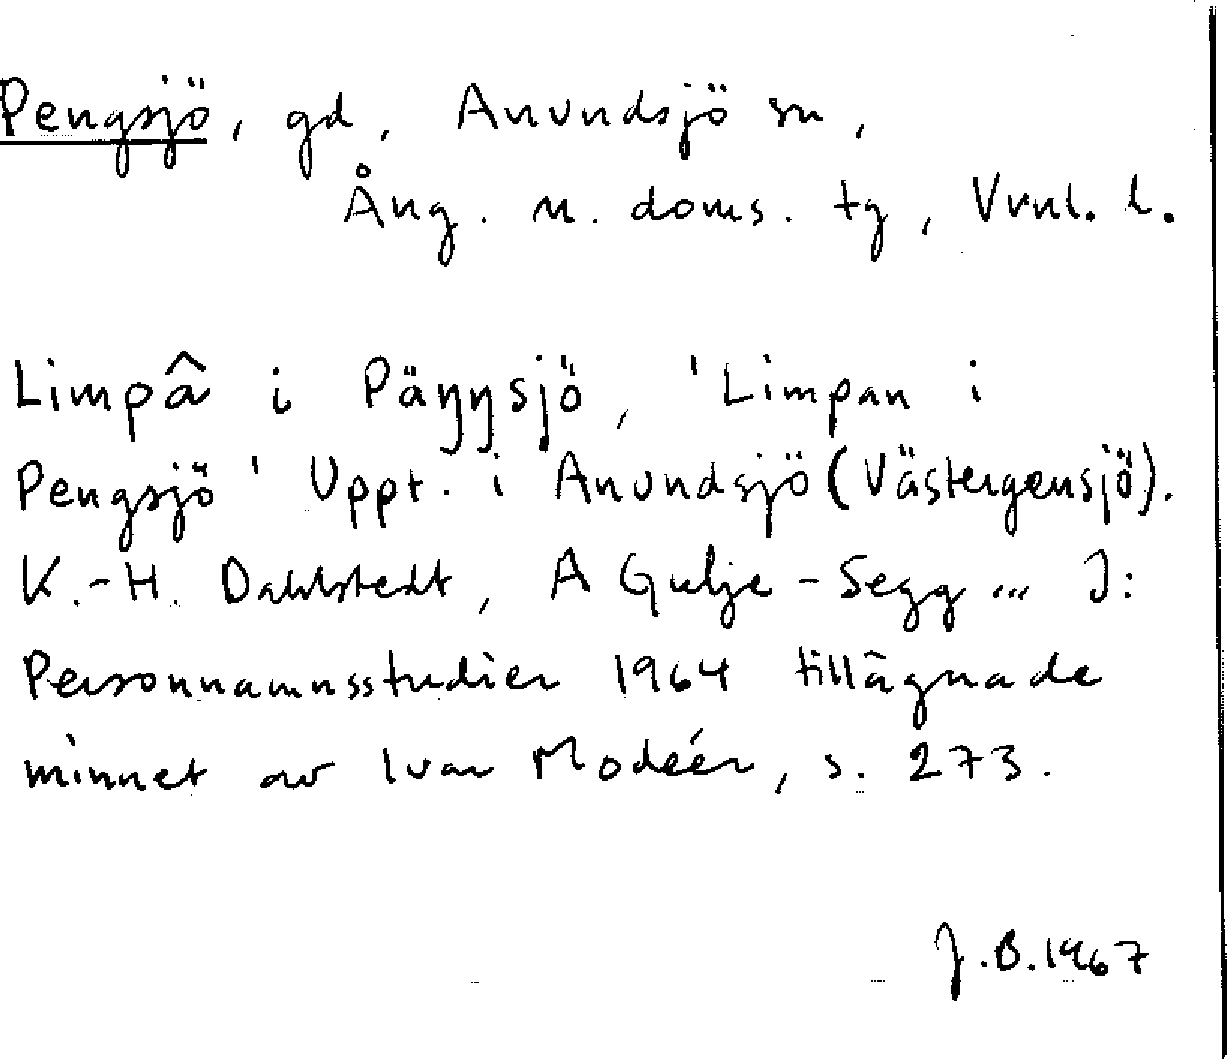 Pengsjö, gd, Anundsjö sn,
Ång. n. doms. tg, Vrnl. l.
Limpâ i Päŋŋsjö, 'Limpan i
Pengsjö' Uppt. i Anundsjö (Västergensjö).
K.-H. Dahlstedt, A Gulje-Segg... I:
Personnamnsstudier 1964 tillägnade
minnet av Ivar Modéer, s. 273.
J.B. 1967